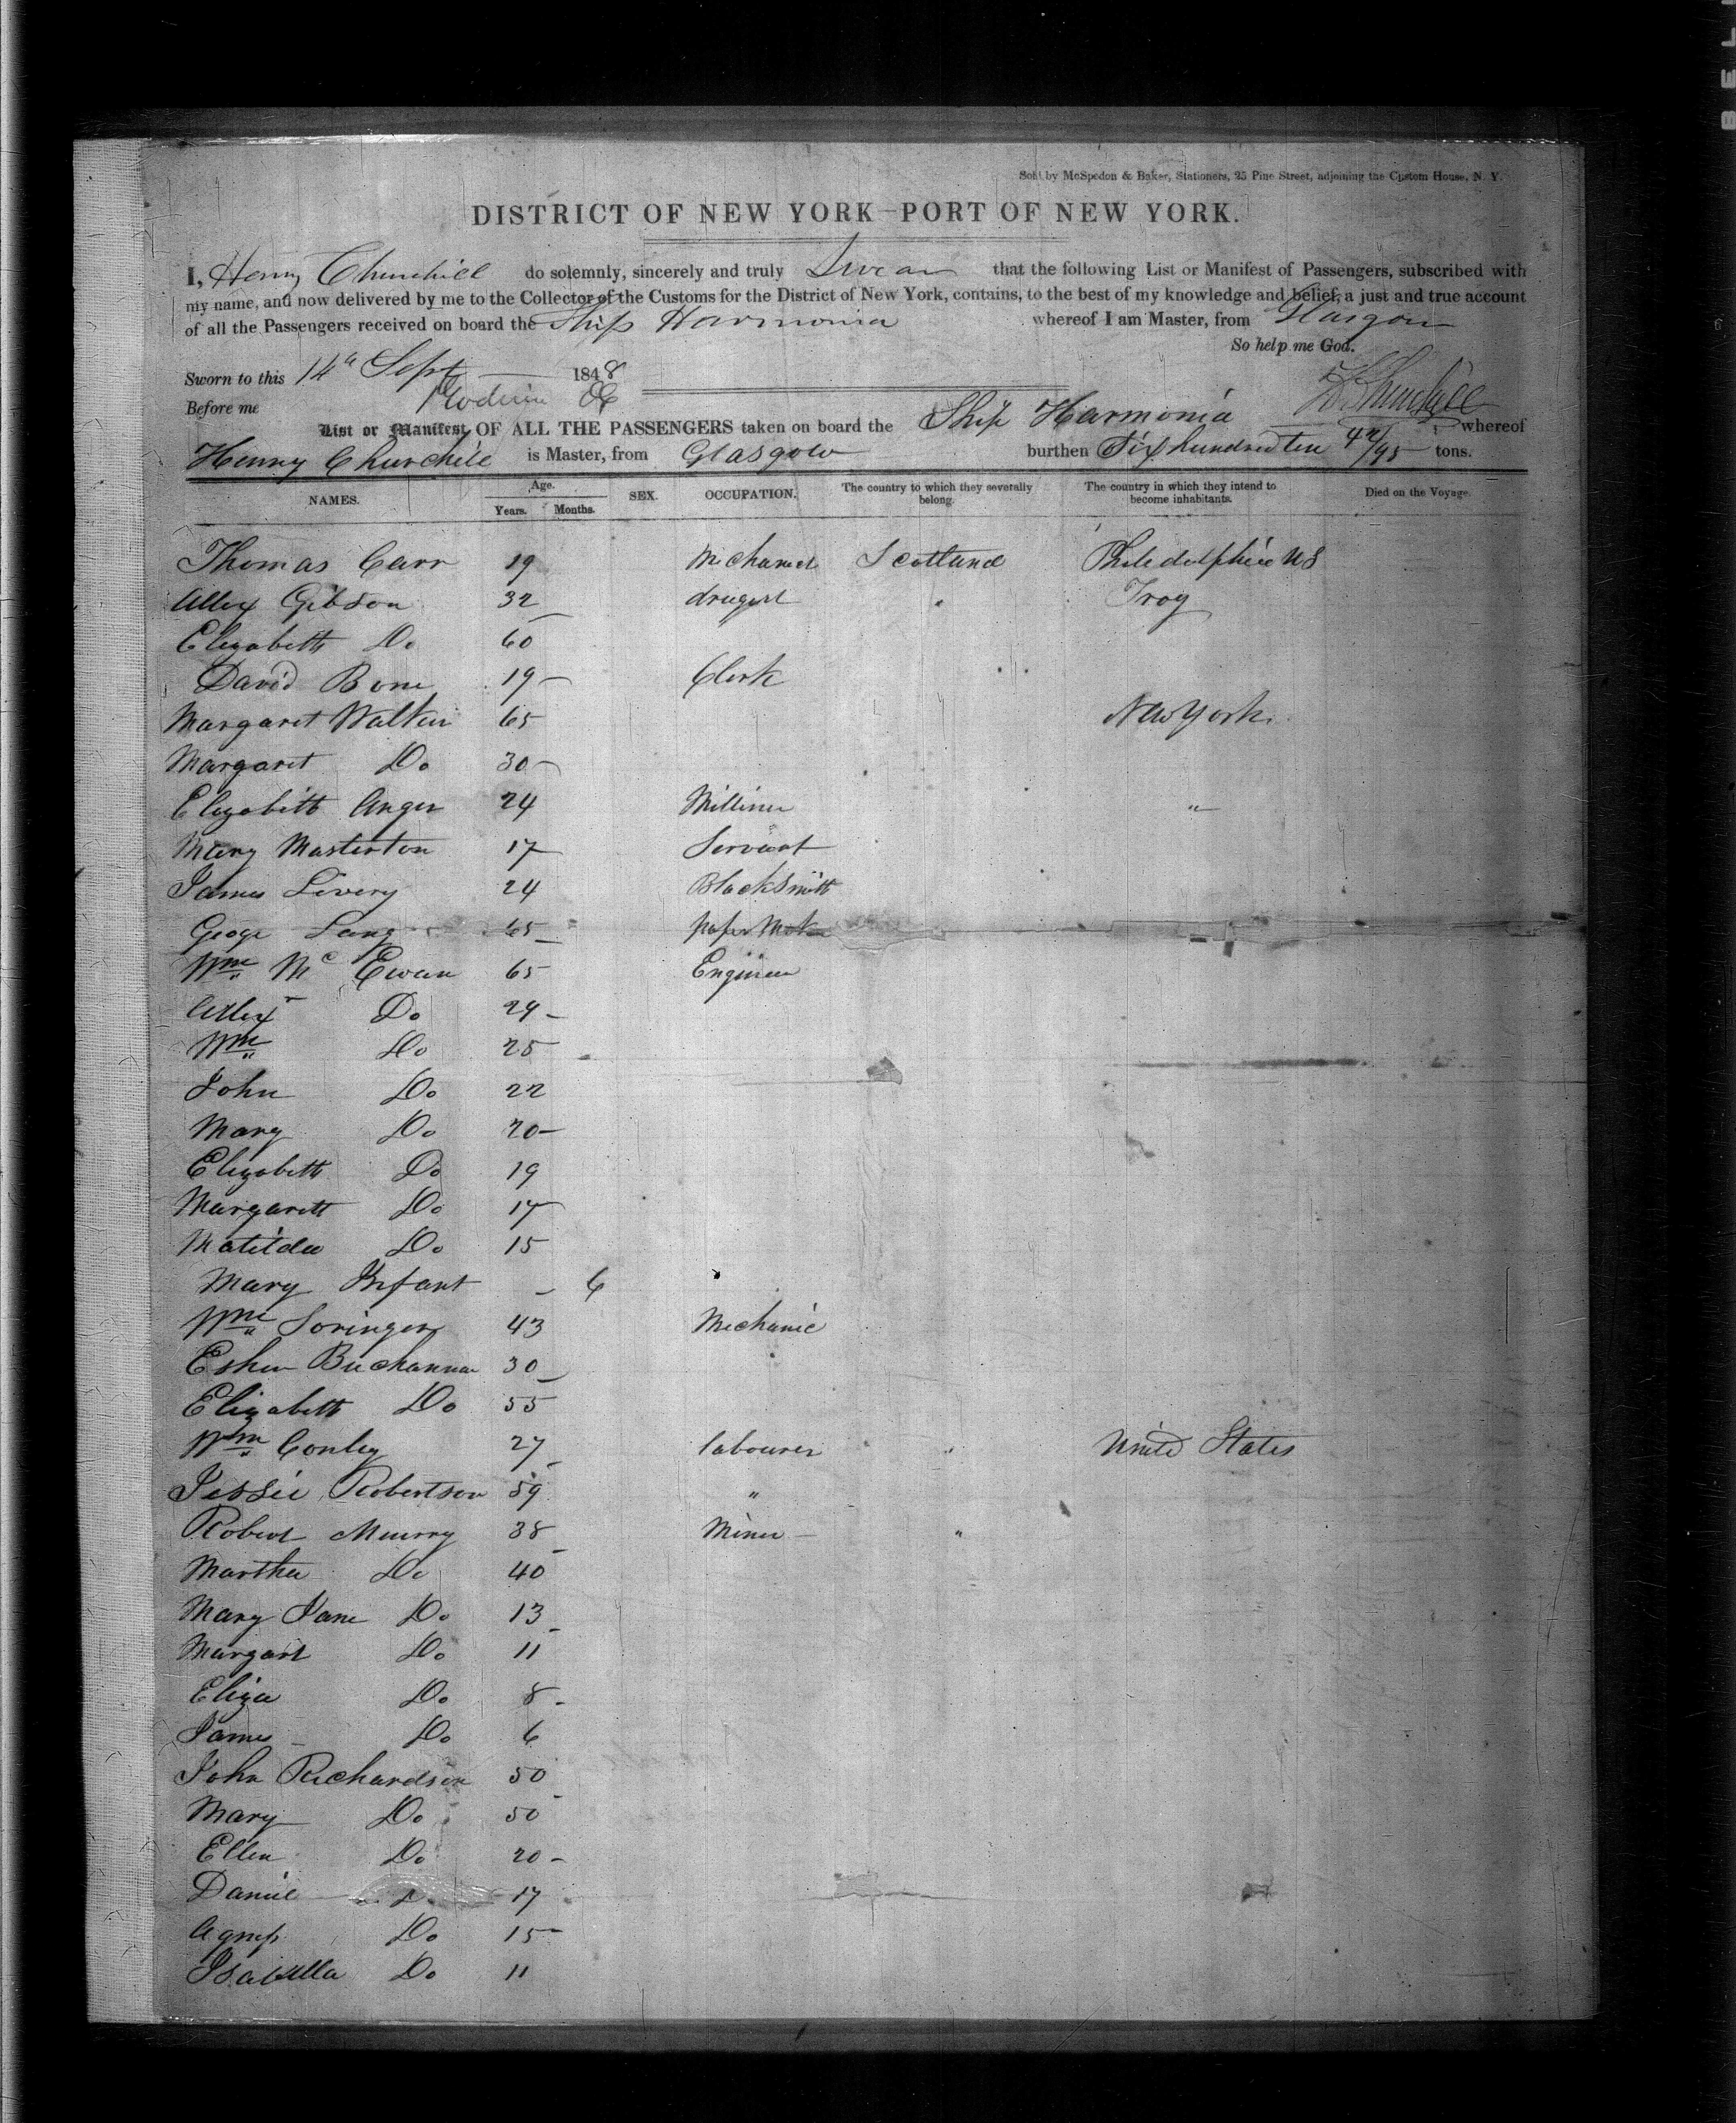 Sold by McSpedon & Baker, Stationers, 25 Pine Street, adjoining the Custom House, N. Y.
DISTRICT OF NEW YORK—PORT OF NEW YORK.
I, Henry Churchill do solemnly, sincerely and truly Swear that the following List or Manifest of Passengers, subscribed with
my name, and now delivered by me to the Collector of the Customs for the District of New York, contains, to the best of my knowledge and belief, a just and true account
of all the Passengers received on board the Ship Harmonia whereof I am Master, from Glasgow
So help me God.
Sworn to this 14th Sept 1848 H Churchill
Before me
List or Manifest OF ALL THE PASSENGERS taken on board the Ship Harmonia whereof
Henry Churchill is Master, from Glasgow burthen Six hundred ten 42/95 tons.
NAMES. Age. Years. Months. SEX. OCCUPATION. The country to which they severally belong. The country in which they intend to become inhabitants. Died on the Voyage.
Thomas Carr 19 Mechanick Scotland Philedelphia US
Allex Gibson 32 drugist " Troy
Elizabeth Do 60
David Bone 19 Clerk
Margaret Walker 65 New York
Margaret Do 30
Elizabeth Anger 24 Milliner "
Mary Masterton 17 Servant
James Livery 24 Blacksmith
George Lang 65 paper Maker
Wm Mc Ewan 65 Engineer
Allexr Do 29
Wm Do 25
John Do 22
Mary Do 20
Elizabeth Do 19
Margarett Do 17
Matilda Do 15
Mary Infant 6
Wm Soringer 43 Mechanic
Esher Buchannan 30
Elizabeth Do 55
Wm Conley 27 labourer " United States
Jessie Robertson 59 "
Robert Murry 38 Miner "
Martha Do 40
Mary Jane Do 13
Margart Do 11
Eliza Do 8
James Do 6
John Richardson 50
Mary Do 50
Ellen Do 20
Daniel Do 17
Agness Do 15
Isabella Do 11